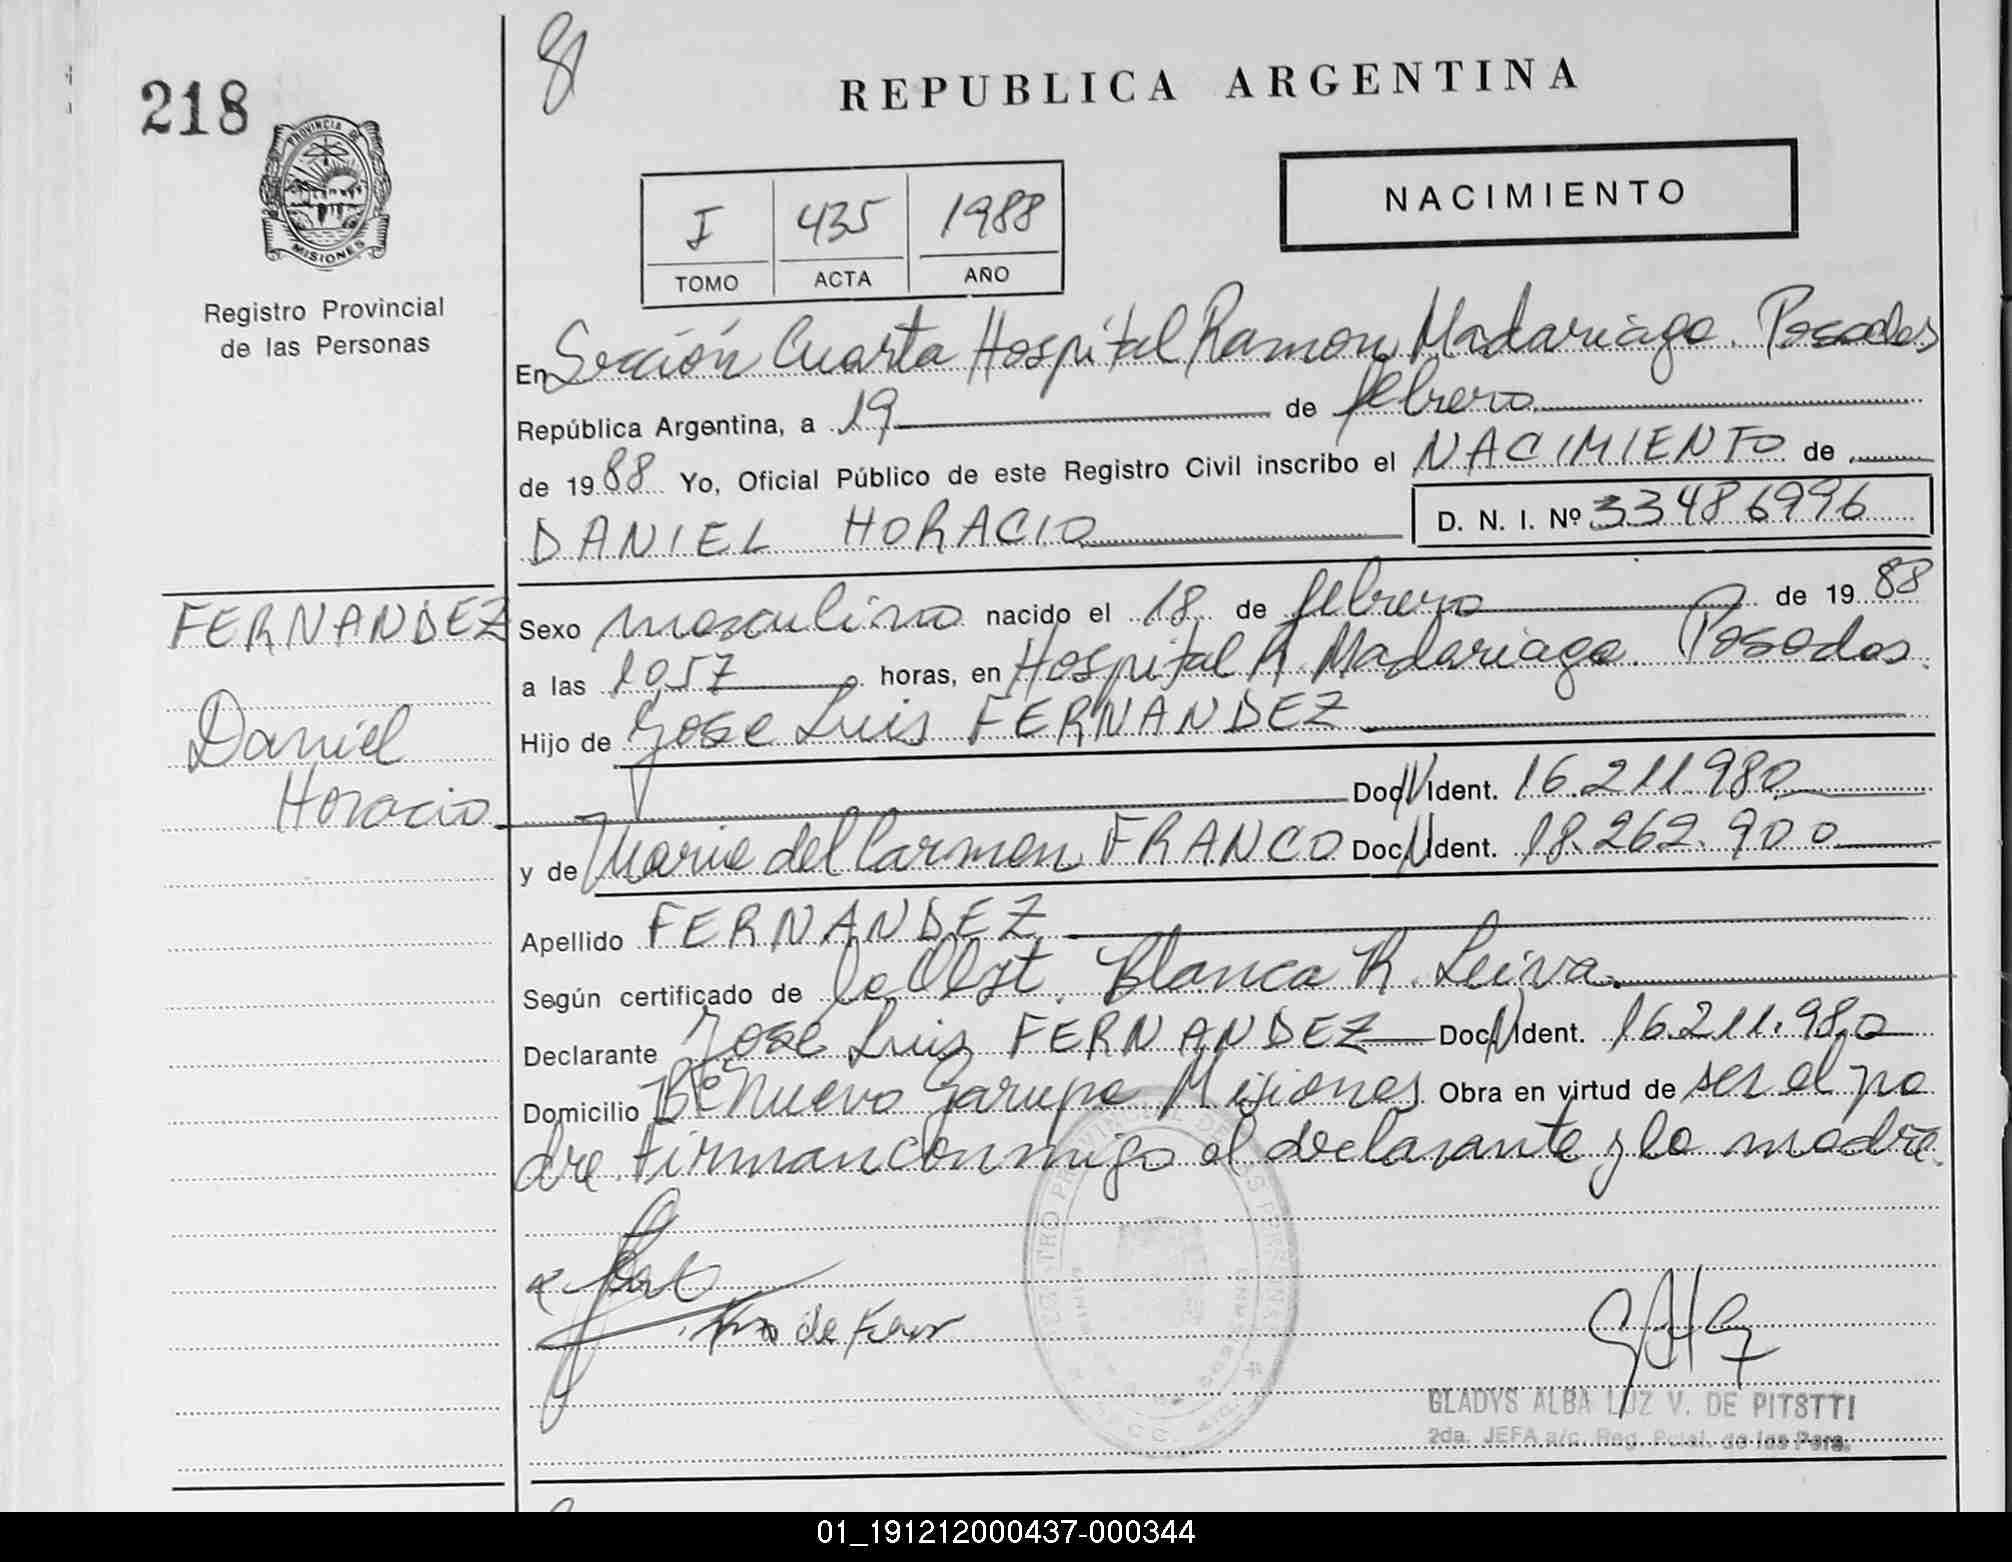 218
PROVINCIA DE
MISIONES
Registro Provincial
de las Personas
REPUBLICA ARGENTINA
NACIMIENTO
I 435 1988
TOMO ACTA AÑO
En Sección Cuarta Hospital Ramon Madariaga. Posadas
República Argentina, a 19 de febrero
de 1988 Yo, Oficial Público de este Registro Civil inscribo el NACIMIENTO de
DANIEL HORACIO D. N. I. Nº 33486996
FERNANDEZ
Daniel
Horacio
Sexo masculino nacido el 18 de febrero de 1988
a las 10,57 horas, en Hospital R. Madariaga. Posadas.
Hijo de Jose Luis FERNANDEZ
Doc N Ident. 16.211.980
y de Maria del Carmen FRANCO Doc N Ident. 18.262.900
Apellido FERNANDEZ
Según certificado de la Obst. Blanca R. Leiva.
Declarante José Luis FERNANDEZ Doc N Ident. 16.211.980
Domicilio Bº Nuevo Garupa Misiones Obra en virtud de ser el pa
dre. Firman conmigo el declarante y la madre.
de
GLADYS ALBA LUZ V. DE PITSTTI
2da. JEFA a/c. Reg. Pcial. de las Pers.
01_191212000437-000344